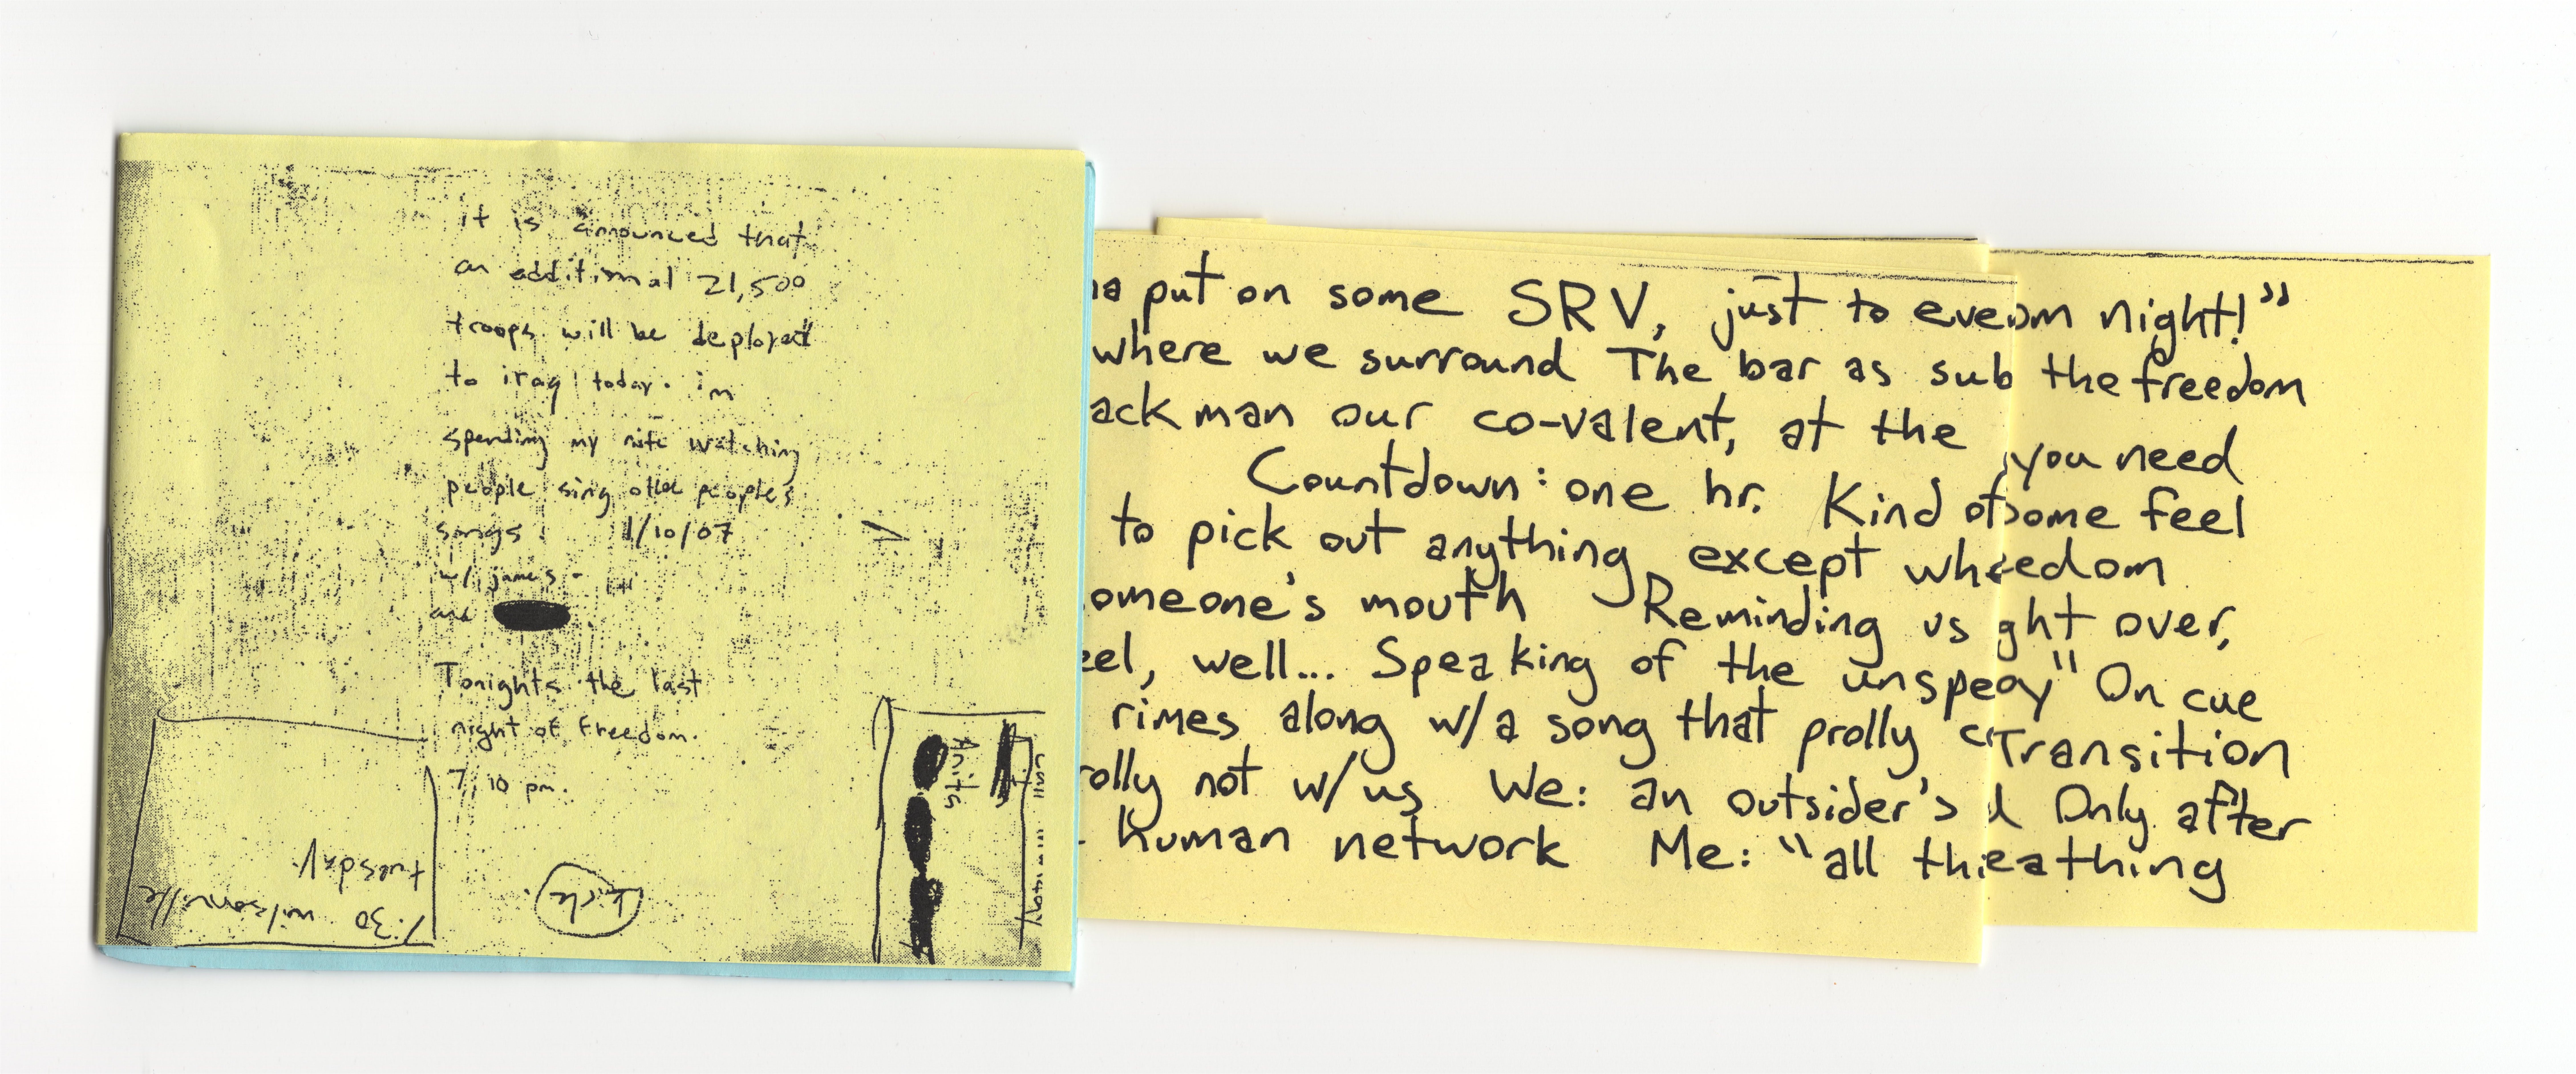 it is announced that
an additional 21,500
troops will be deployed
to iraq today. im
spending my nite watching
people sing other peoples
songs. 1/10/07
w/ james -
and
Tonights the last
night of freedom.
7:10 pm.
7:30 wilsonville
tuesday
put on some SRV, just to eve
where we surround The bar as sub
ack man our co-valent, at the
Countdown: one hr. Kind of
to pick out anything except wh
omeone's mouth Reminding us
eel, well... Speaking of the unspea
rimes along w/a song that prolly
rolly not w/us We: an outsider's
human network Me: "all thi
om night!"
the freedom
you need
some feel
eedom
ght over,
ay" On cue
Transition
d Only after
eathing